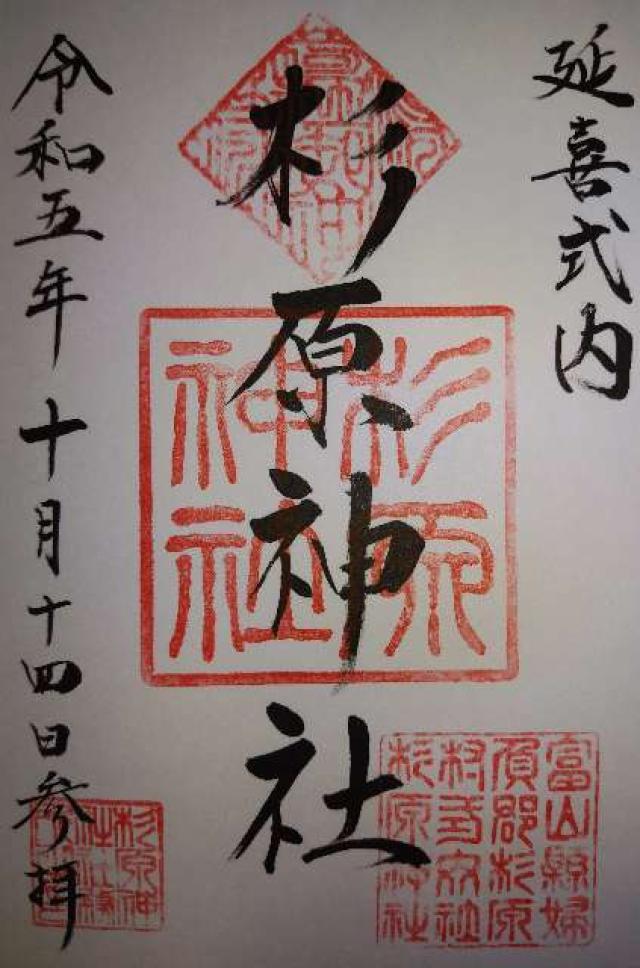 延喜式内
杉原神社
令和五年十月十四日参拝
杉原
神社
富山縣婦
負郡杉原
村
杉原神社